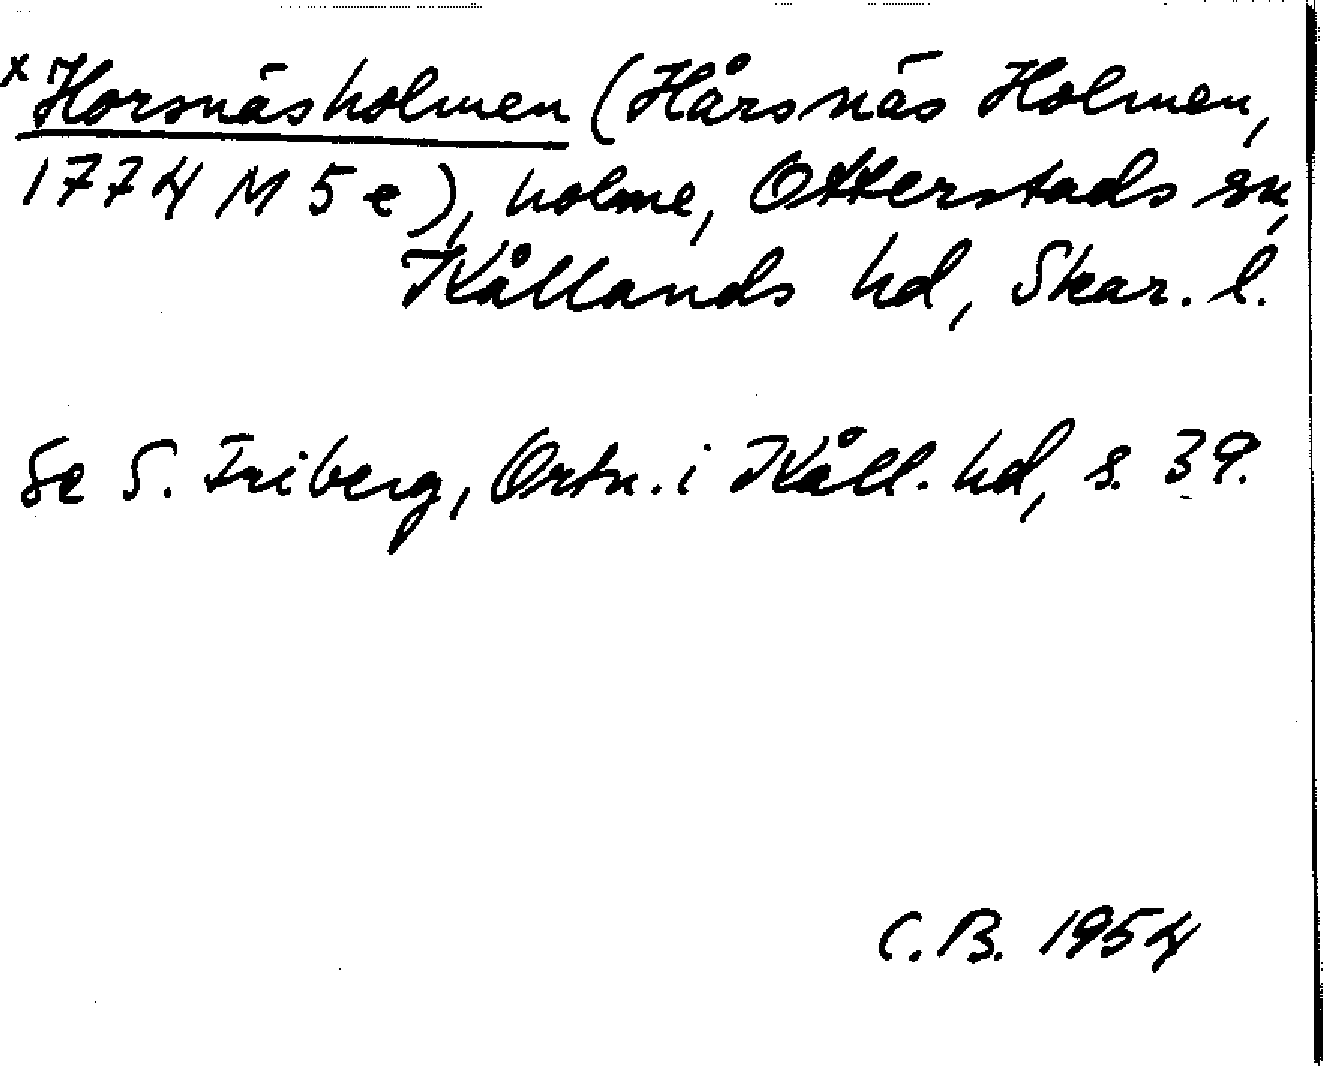 x Horsnäsholmen (Hårsnäs Holmen,
1774 M 5 e), holme, Otterstads sn,
Kållands hd, Skar. l.
Se S. Friberg, Ortn. i Kåll. hd, s. 39.
C.B. 1954